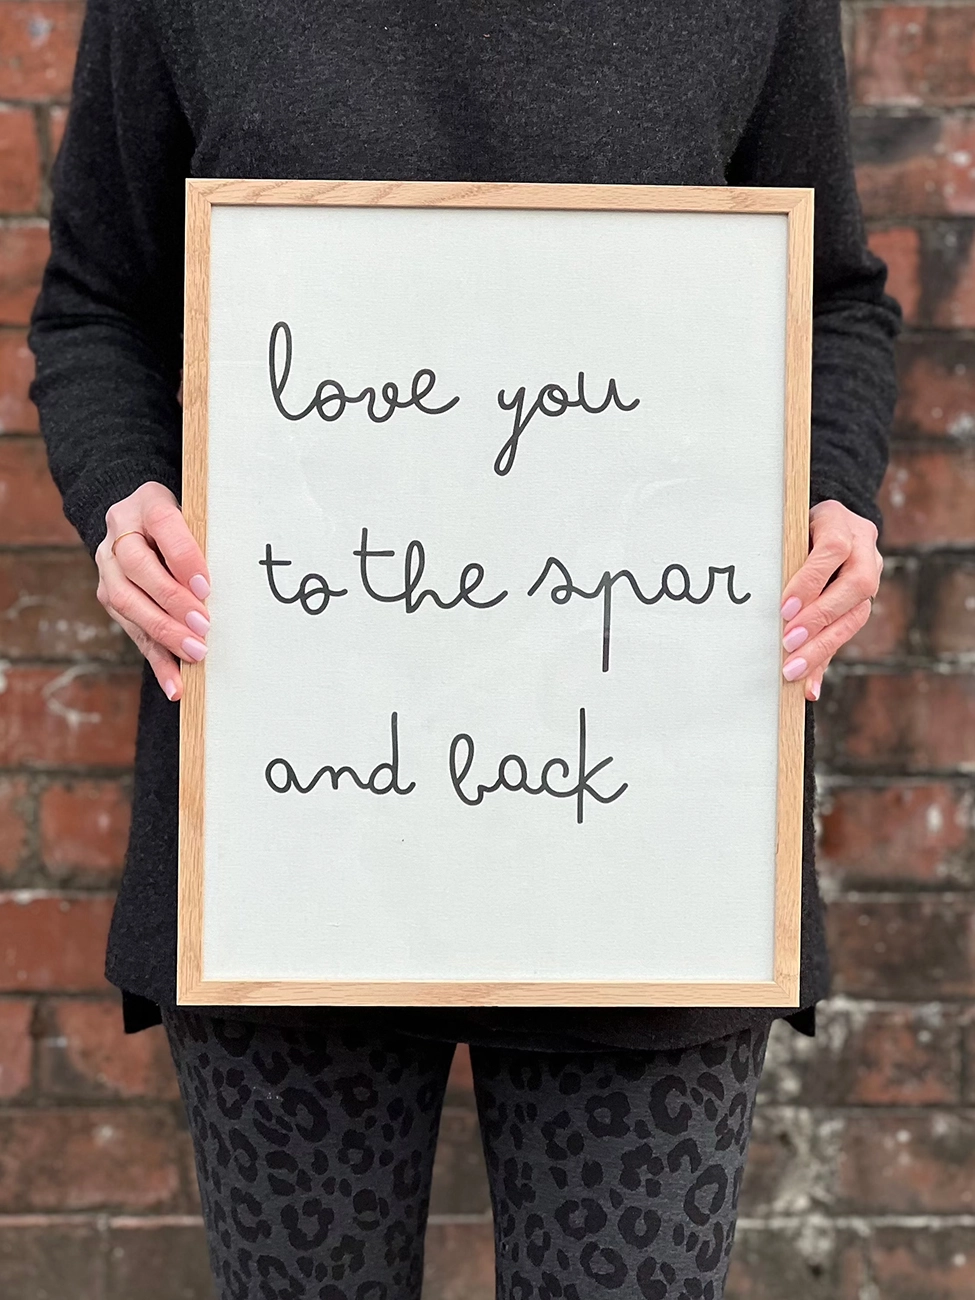 love you
to the spar
and back